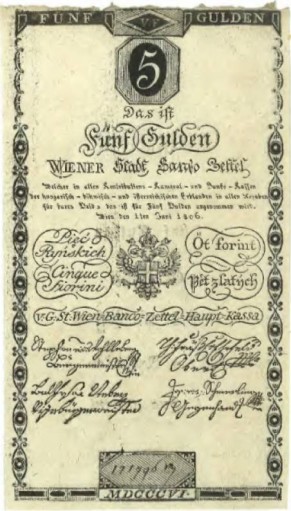 FUNF V·F GULDEN
5
Das ist
Fünf Gulden
WIENER Stadt Banco Zettel
Welcher in allen Kontributions - Kameral - und Banko - Kassen
der hungarisch - böhmisch - und österreichischen Erblanden in allen Abgaben
für bares Geld, das ist für Fünf Gulden angenommen wird.
Wien den 1ten Juni 1806.
Pięć Ryńskich
Öt forint
Cinque Fiorini
Pět zlatych
V·G·St. Wien Banco-Zettel-Haupt-Kassa
MDCCCVI